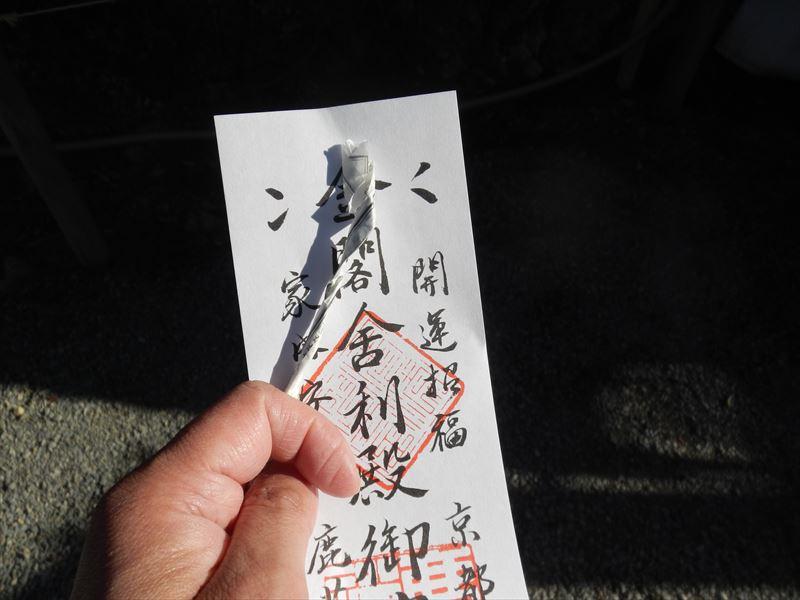 開運招福
京都
金閣舎利殿御
家内安
鹿